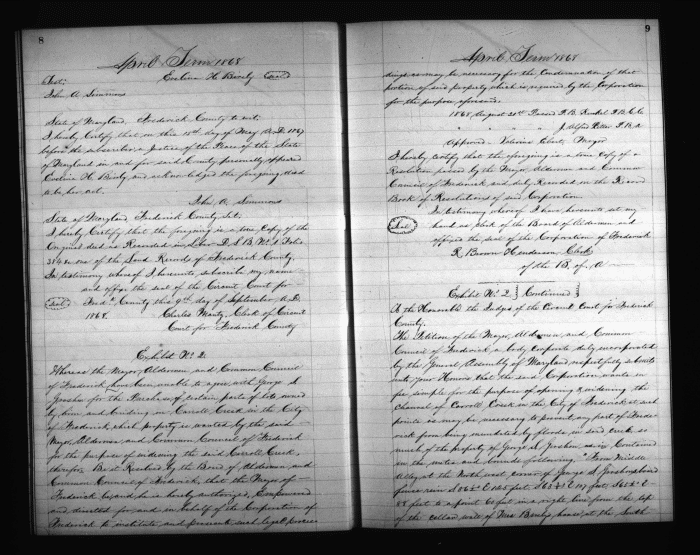 8
April Term 1868
Evelina H. Barely (Seal)
Test:
John A. Simmons
State of Maryland, Frederick County to wit:
I hereby Certify that on this 15th day of May A.D. 1867
before the subscriber a Justice of the Peace of the State
of Maryland in and for said County personally appeared
Evelina H. and acknowledged the foregoing deed
to be her act.
John A. Simmons
State of Maryland, Frederick County Sct.
I hereby Certify that the foregoing is a true Copy of the
Original deed as Recorded in Liber D. S. B. No. 1 Folio
one of the Land Records of Frederick County.
In testimony whereof I hereunto subscribe my name
and affix the seal of the Circuit Court for
(Seal) Fredk County this 9th day of September A.D.
1868. Charles Mantz, Clerk of Circuit
Court for Frederick County
Exhibit No 2.
Whereas the Mayor Aldermen and Common Council
of Frederick have been unable to agree with George S.
Groshon for the Purchase of certain parts of lots owned
by him and binding on Carroll Creek in the City
of Frederick, which property is wanted by the said
Mayor, Aldermen, and Common Council of Frederick
for the purpose of widening the said Carroll Creek,
therefore Be it Resolved by the Board of Aldermen and
Common Council of Frederick, that the Mayor of
Frederick be and he is hereby authorized, Empowered
and directed for and in behalf of the Corporation of
Frederick to institute and prosecute such legal procee
9
April Term 1868
dings as may be necessary for the Condemnation of that
portion of said property which is required by the Corporation
for the purpose aforesaid.
1868, August 20th Passed F. B.
J. Alfred Ritter P. B. A
Approved - Valerius Ebert, Mayor
I hereby certify that the aforegoing is a true Copy of a
Resolution passed by the Mayor Aldermen and Common
Council of Frederick and duly Recorded in the Record
Book of Resolutions of said Corporation.
In testimony whereof I have hereunto set my
(Seal) hand as Clerk of the Board of Aldermen and
affixed the seal of the Corporation of Frederick
R. Brown Henderson, Clerk
of the B. of A -
Exhibit No 2. } Continued }
To the Honorable the Judges of the Circuit Court for Frederick
County.
The Petition of the Mayor, Aldermen, and Common
Council of Frederick a body Corporate duly incorporated
by the General Assembly of Maryland, respectfully submits
unto your Honors that the said Corporation wants in
fee simple for the purpose of opening & widening the
channel of Carroll Creek in the City of Frederick at such
points as may be necessary to prevent any part of Frede
rick from being inundated by floods, in said creek so
much of the property of George S. Groshon as is Contained
in the metes and bounds following "From Middle
Alley at the North east corner of George S. Groshons board
fence
to a point 60 feet in a right line from the top
of the cellar wall of Mrs house, at the South